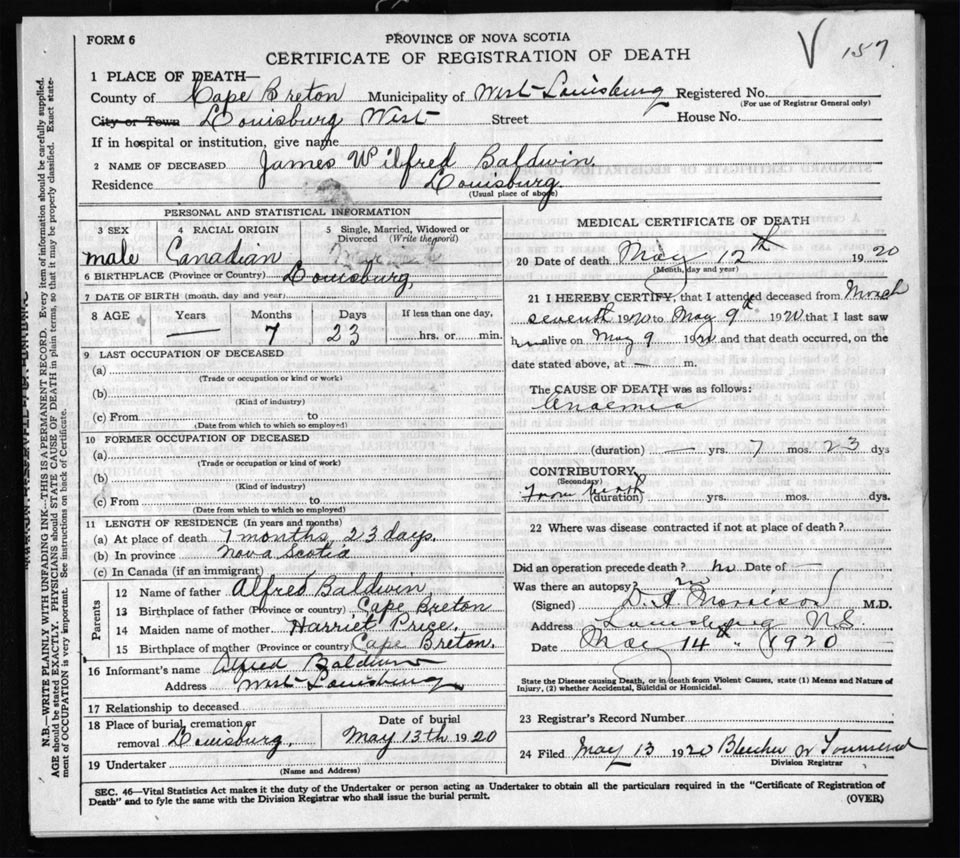 FORM 6
PROVINCE OF NOVA SCOTIA
CERTIFICATE OF REGISTRATION OF DEATH
V 157
1 PLACE OF DEATH—
County of Cape Breton Municipality of West Louisburg Registered No.
(For use of Registrar General only)
City or Town Louisburg West Street House No.
If in hospital or institution, give name
2 NAME OF DECEASED James Wilfred Baldwin
Residence Louisburg.
(Usual place of abode)
PERSONAL AND STATISTICAL INFORMATION
3 SEX 4 RACIAL ORIGIN 5 Single, Married, Widowed or Divorced (Write the word)
male Canadian
6 BIRTHPLACE (Province or Country) Louisburg,
7 DATE OF BIRTH (month, day and year)
8 AGE Years Months Days If less than one day,
— 7 23 hrs. or min.
9 LAST OCCUPATION OF DECEASED
(a)
(Trade or occupation or kind or work)
(b)
(Kind of industry)
(c) From to
(Date from which to which so employed)
10 FORMER OCCUPATION OF DECEASED
(a)
(Trade or occupation or kind of work)
(b)
(Kind of industry)
(c) From to
(Date from which to which so employed)
11 LENGTH OF RESIDENCE (In years and months)
(a) At place of death 7 months, 23 days.
(b) In province Nova Scotia
(c) In Canada (if an immigrant)
Parents
12 Name of father Alfred Baldwin
13 Birthplace of father (Province or country) Cape Breton
14 Maiden name of mother Harriet Price.
15 Birthplace of mother (Province or country) Cape Breton.
16 Informant's name Alfred Baldwin
Address West Louisburg
17 Relationship to deceased
18 Place of burial, cremation or removal Louisburg, Date of burial May 13th 1920
19 Undertaker
(Name and Address)
MEDICAL CERTIFICATE OF DEATH
20 Date of death May 12th 1920
(Month, day and year)
21 I HEREBY CERTIFY, that I attended deceased from March
seventh 1920 to May 9th 1920 that I last saw
him alive on May 9 1920 and that death occurred, on the
date stated above, at — m.
The CAUSE OF DEATH was as follows:
Anaemia
(duration) — yrs. 7 mos. 23 dys
CONTRIBUTORY.
(Secondary)
From birth (duration) yrs. mos. dys.
22 Where was disease contracted if not at place of death?
Did an operation precede death? no Date of —
Was there an autopsy? no
(Signed) D. A. Morrison M.D.
Address Louisburg N.S.
Date May 14th 1920
State the Disease causing Death, or in death from Violent Causes, state (1) Means and Nature of
Injury, (2) whether Accidental, Suicidal or Homicidal.
23 Registrar's Record Number
24 Filed May 13 1920 W Townsend
Division Registrar
SEC. 46—Vital Statistics Act makes it the duty of the Undertaker or person acting as Undertaker to obtain all the particulars required in the "Certificate of Registration of
Death" and to fyle the same with the Division Registrar who shall issue the burial permit.
(OVER)
N.B.—WRITE PLAINLY WITH UNFADING INK—THIS IS A PERMANENT RECORD. Every item of information should be carefully supplied.
AGE should be stated EXACTLY. PHYSICIANS should STATE CAUSE OF DEATH in plain terms, so that it may be properly classified. Exact state-
ment of OCCUPATION is very important. See instructions on back of Certificate.